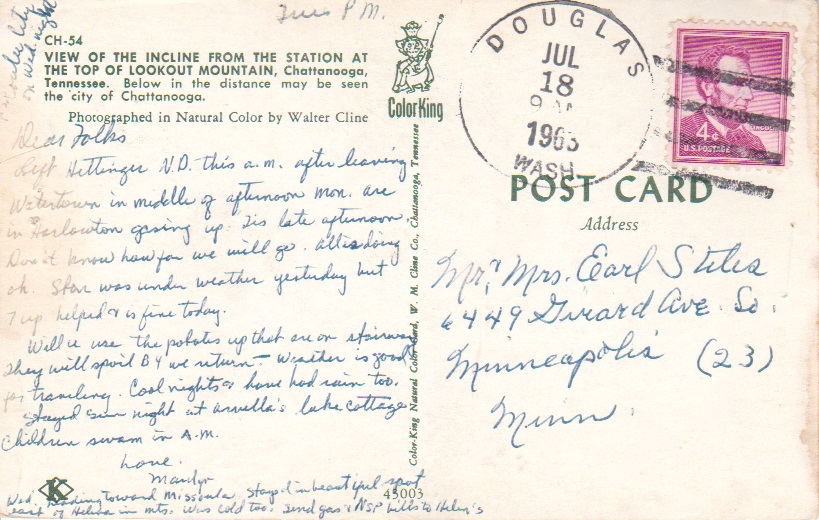 Tues P M.
City
on Wed. night
CH-54
VIEW OF THE INCLINE FROM THE STATION AT
THE TOP OF LOOKOUT MOUNTAIN, Chattanooga,
Tennessee. Below in the distance may be seen
the city of Chattanooga.
Photographed in Natural Color by Walter Cline
Dear Folks
Left Hettinger N.D. this a.m. after leaving
Watertown in middle of afternoon Mon. are
in Harlowton gasing up. Tis late afternoon.
Don't know how far we will go. All is doing
ok. was under weather yesterday but
7 up helped & is fine today.
Will u use the potatoes up that are on stairway
They will spoil B 4 we return - Weather is good
for traveling. Cool nights & have had rain too.
Stayed Sun night at Arvella's lake cottage
Children swam in A.M.
Love.
Marilyn
Wed. heading toward Missoula. Stayed in beautiful spot
east of Helena in mts. Was cold too. Send gas & NSP bills to Helen's
K
45003
Color-King Natural Color Card, W. M. Cline Co., Chattanooga, Tennessee
ColorKing
DOUGLAS
JUL
18
9 AM
1963
WASH
LINCOLN
4¢
U.S. POSTAGE
POST CARD
Address
Mr & Mrs. Earl Stiles
6449 Girard Ave. So.
Minneapolis (23)
Minn.